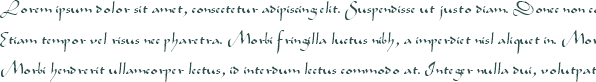 Lorem ipsum dolor sit amet, consectetur adipiscing elit. Suspendisse ut justo diam. Donec non co
Etiam tempor vel risus nec pharetra. Morbi fringilla luctus nibh, a imperdiet nisl aliquet in. Mor
Morbi hendrerit ullamcorper lectus, id interdum lectus commodo at. Integer nulla dui, volutpat